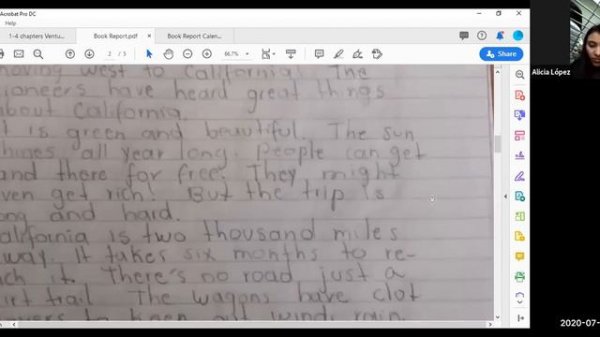 Acrobat Pro DC
Help
1-4 chapters Ventu...
Book Report.pdf
Book Report Calen...
2 / 5
66.7%
Share
Alicia López
moving west to California! The
ioneers have heard great things
about California.
t is green and beautiful. The sun
hines all year long. People can get
and there for free. They might
ven get rich! But the trip is
ong and hard.
alifornia is two thousand miles
way. It takes six months to re-
ach it. There's no road just a
irt trail. The wagons have clot
keep out wind, rain,
2020-07-